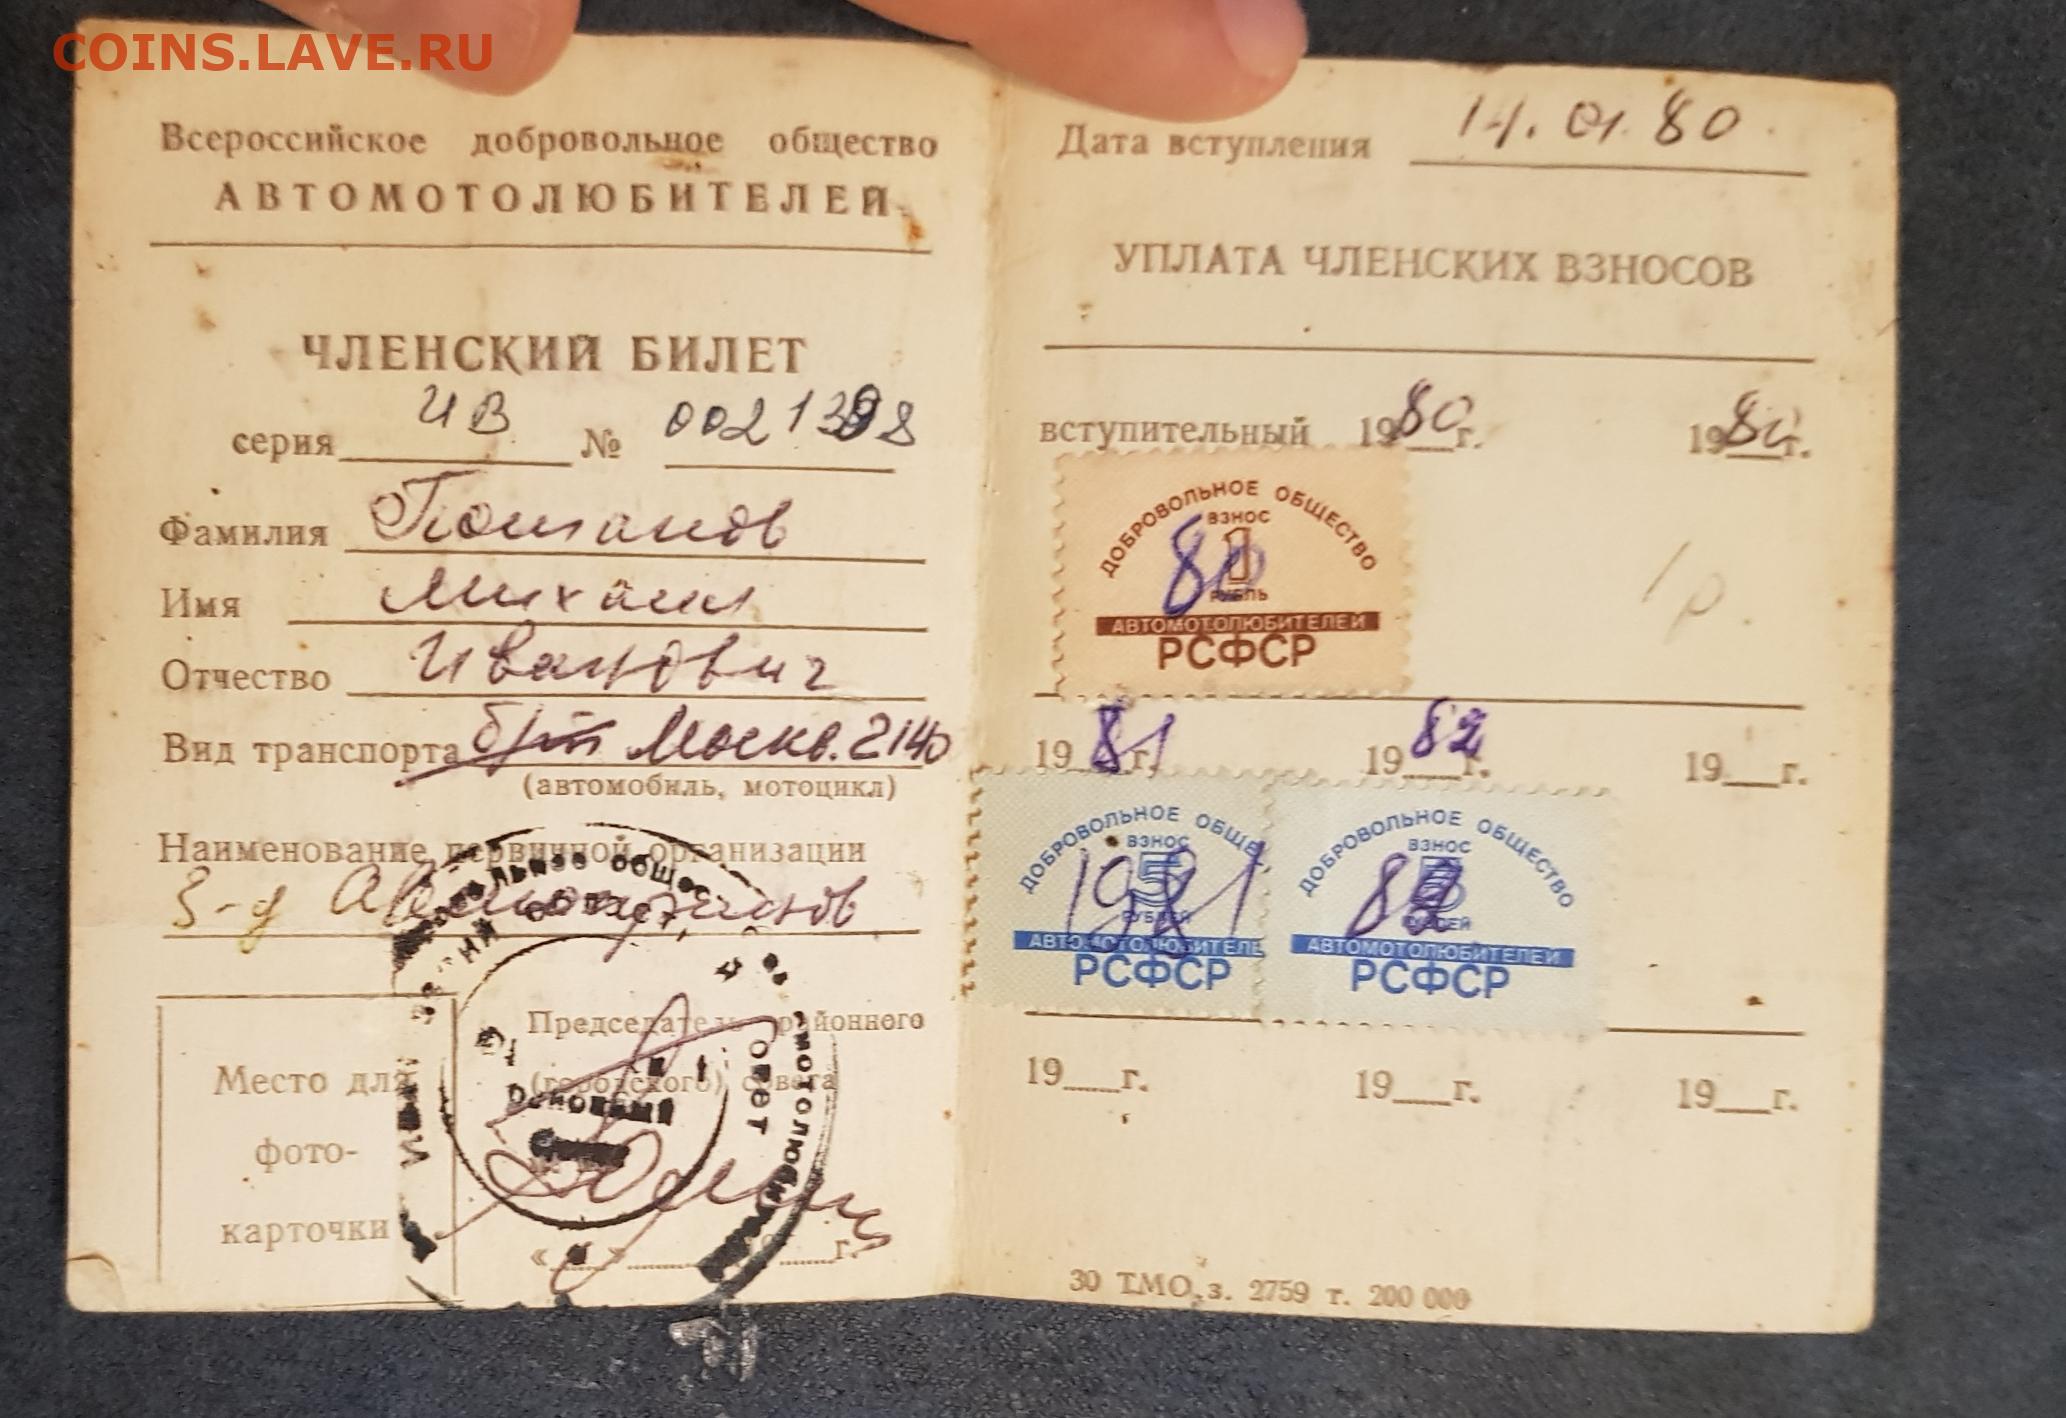 COINS.LAVE.RU
Всероссийское добровольное общество
АВТОМОТОЛЮБИТЕЛЕЙ
ЧЛЕНСКИЙ БИЛЕТ
серия ИВ № 0021398
Фамилия
Имя Михаил
Отчество Иванович
Вид транспорта Москв. 2140
(автомобиль, мотоцикл)
Наименование первичной организации
З-д
Место для
фото-
карточки
Председатель районного
(городского) совета
районный
совет
« » г.
Дата вступления 14.01.80
УПЛАТА ЧЛЕНСКИХ ВЗНОСОВ
вступительный 1980г. 1980г.
ДОБРОВОЛЬНОЕ ОБЩЕСТВО
ВЗНОС
1
80
РУБЛЬ
АВТОМОТОЛЮБИТЕЛЕЙ
РСФСР
1 р.
1981г. 1982г. 19 г.
ДОБРОВОЛЬНОЕ ОБЩЕ
ВЗНОС
5
1981
РУБЛЕЙ
АВТОМОТОЛЮБИТЕЛЕ
РСФСР
ДОБРОВОЛЬНОЕ ОБЩЕСТВО
ВЗНОС
5
82
РУБЛЕЙ
АВТОМОТОЛЮБИТЕЛЕЙ
РСФСР
19 г. 19 г. 19 г.
30 ТМО з. 2759 т. 200 000